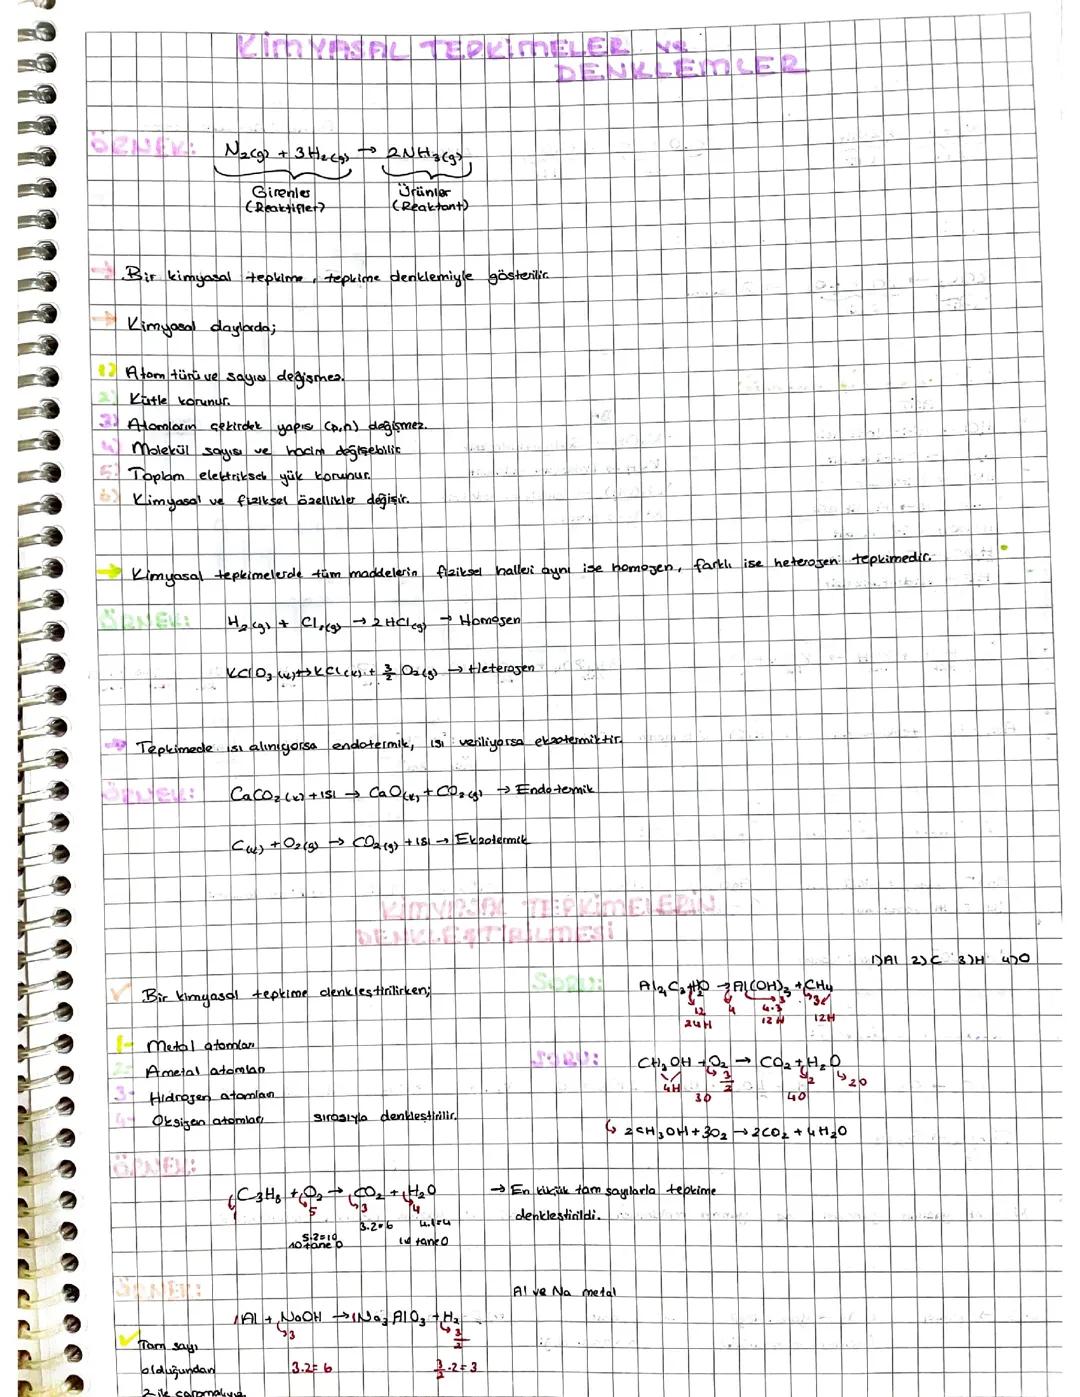 KİMYASAL TEPKİMELER ve
DENKLEMLER
ÖRNEK: N₂(g) + 3H₂(g) → 2NH₃(g)
Girenler Ürünler
(Reaktifler) (Reaktant)
→ Bir kimyasal tepkime, tepkime denklemiyle gösterilir.
→ Kimyasal olaylarda;
1) Atom türü ve sayısı değişmez.
2) Kütle korunur.
3) Atomların çekirdek yapısı (p,n) değişmez.
4) Molekül sayısı ve hacim değişebilir
5) Toplam elektriksel yük korunur.
6) Kimyasal ve fiziksel özellikler değişir.
→ Kimyasal tepkimelerde tüm maddelerin fiziksel halleri aynı ise homojen, farklı ise heterojen tepkimedir.
ÖRNEK: H₂(g) + Cl₂(g) → 2HCl(g) → Homojen
KClO₃(k) → KCl(k) + 3/2 O₂(g) → Heterojen
→ Tepkimede ısı alınıyorsa endotermik, ısı veriliyorsa ekzotermiktir.
ÖRNEK: CaCO₂(k) + ısı → CaO(k) + CO₂(g) → Endotermik
C(k) + O₂(g) → CO₂(g) + ısı → Ekzotermik
KİMYASAL TEPKİMELERİN
DENKLEŞTİRİLMESİ
1)Al 2)C 3)H 4)O
✓ Bir kimyasal tepkime denkleştirilirken;
1- Metal atomları
2- Ametal atomları
3- Hidrojen atomları
4- Oksijen atomları sırasıyla denkleştirilir.
SORU: Al₄C₃ + H₂O → Al(OH)₃ + CH₄
12 4 4.3 3
24H 12H 12H
SORU: CH₃OH + O₂ → CO₂ + H₂O
4H 3/2 2 2O
3O 4O
↳ 2CH₃OH + 3O₂ → 2CO₂ + 4H₂O
ÖRNEK:
C₃H₈ + O₂ → CO₂ + H₂O → En küçük tam sayılarla tepkime
1 5 3 4 denkleştirildi.
5.2=10 3.2=6 4.1=4
10 tane O 10 tane O
ÖRNEK: Al ve Na metal
1Al + NaOH → 1Na₃AlO₃ + H₂
3 3/2
✓ Tam sayı
olduğundan 3.2=6 3/2.2=3
2 ile çarpmalıyız.